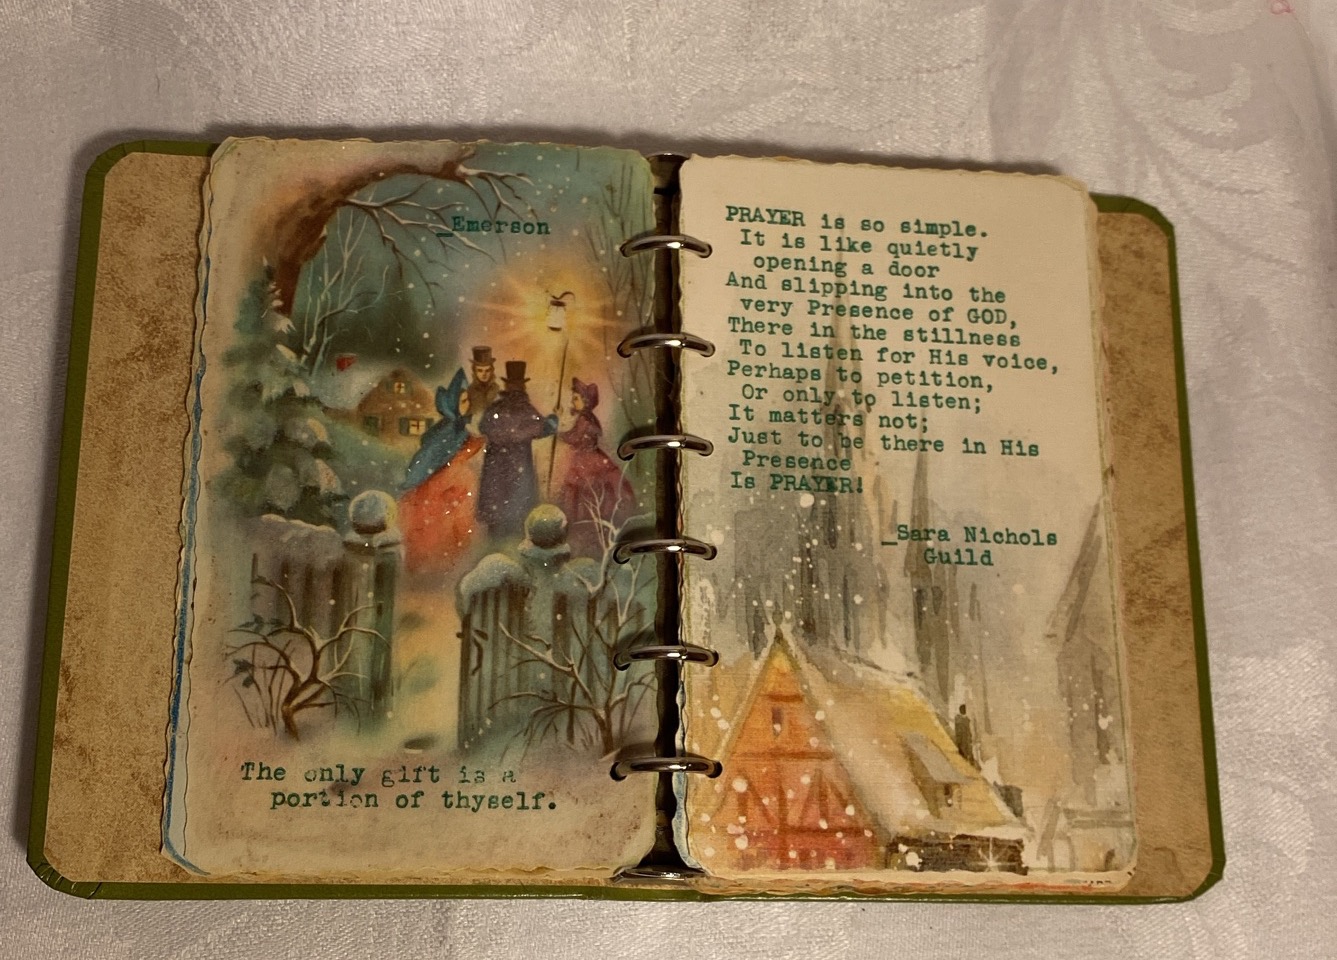 _Emerson
The only gift is a
portion of thyself.
PRAYER is so simple.
It is like quietly
opening a door
And slipping into the
very Presence of GOD,
There in the stillness
To listen for His voice,
Perhaps to petition,
Or only to listen;
It matters not;
Just to be there in His
Presence
Is PRAYER!
_Sara Nichols
Guild